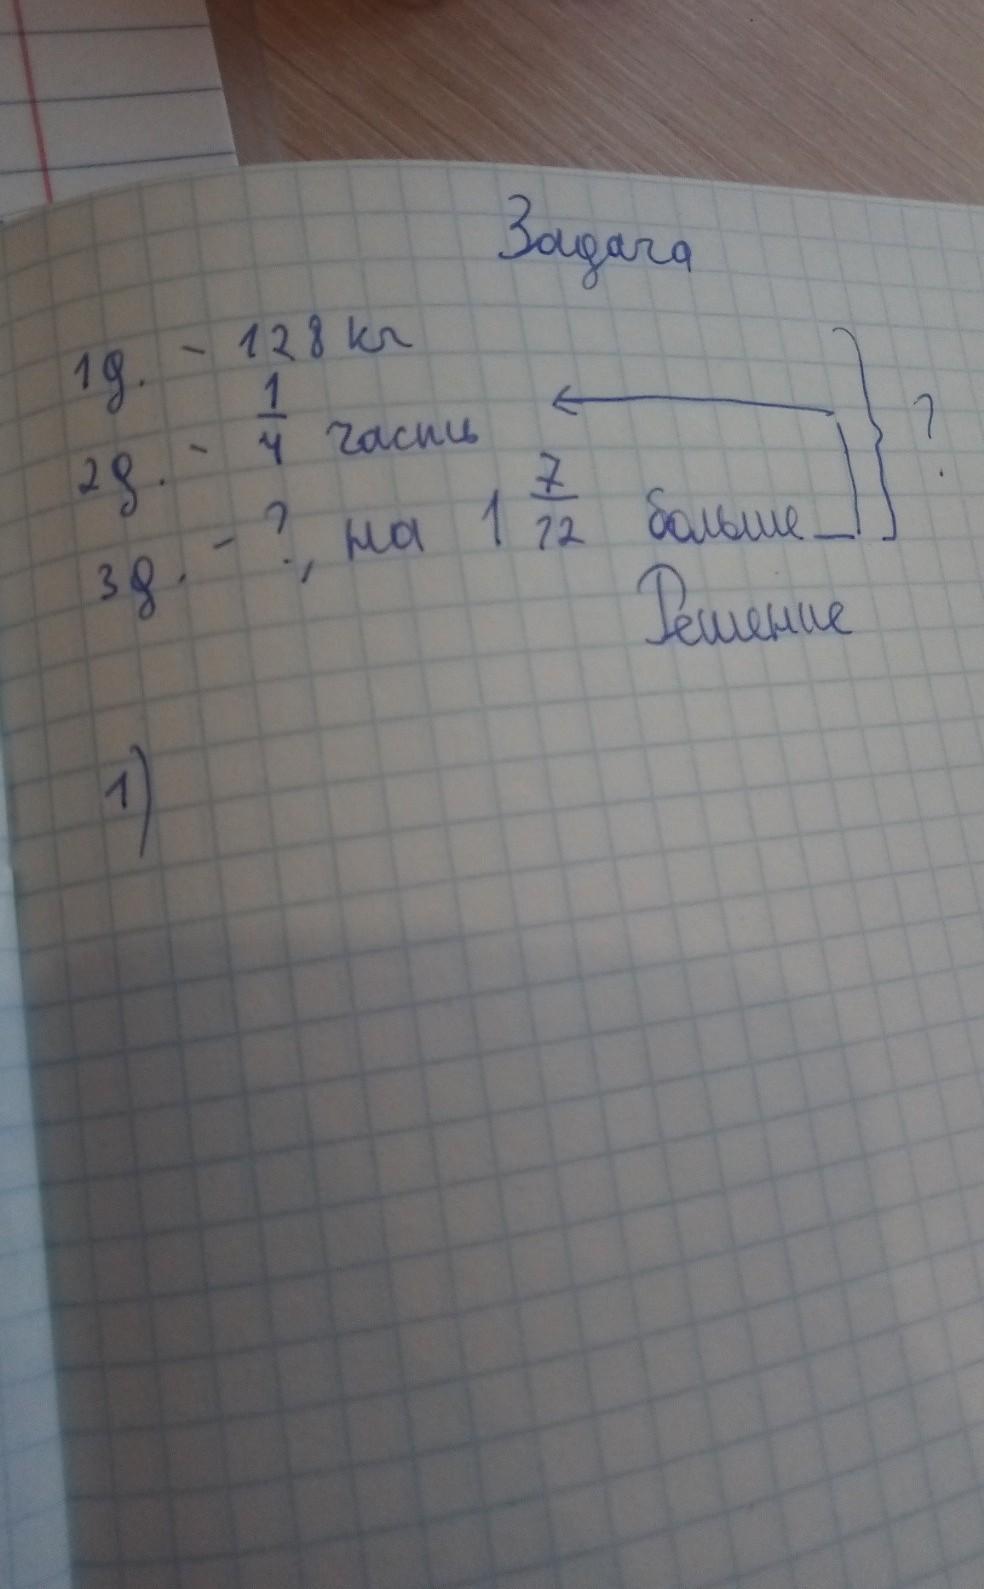 Задача
1д. - 128 кг
2д. - 1/4 часть
3д. - ?, на 1 7/12 больше
?
Решение
1)